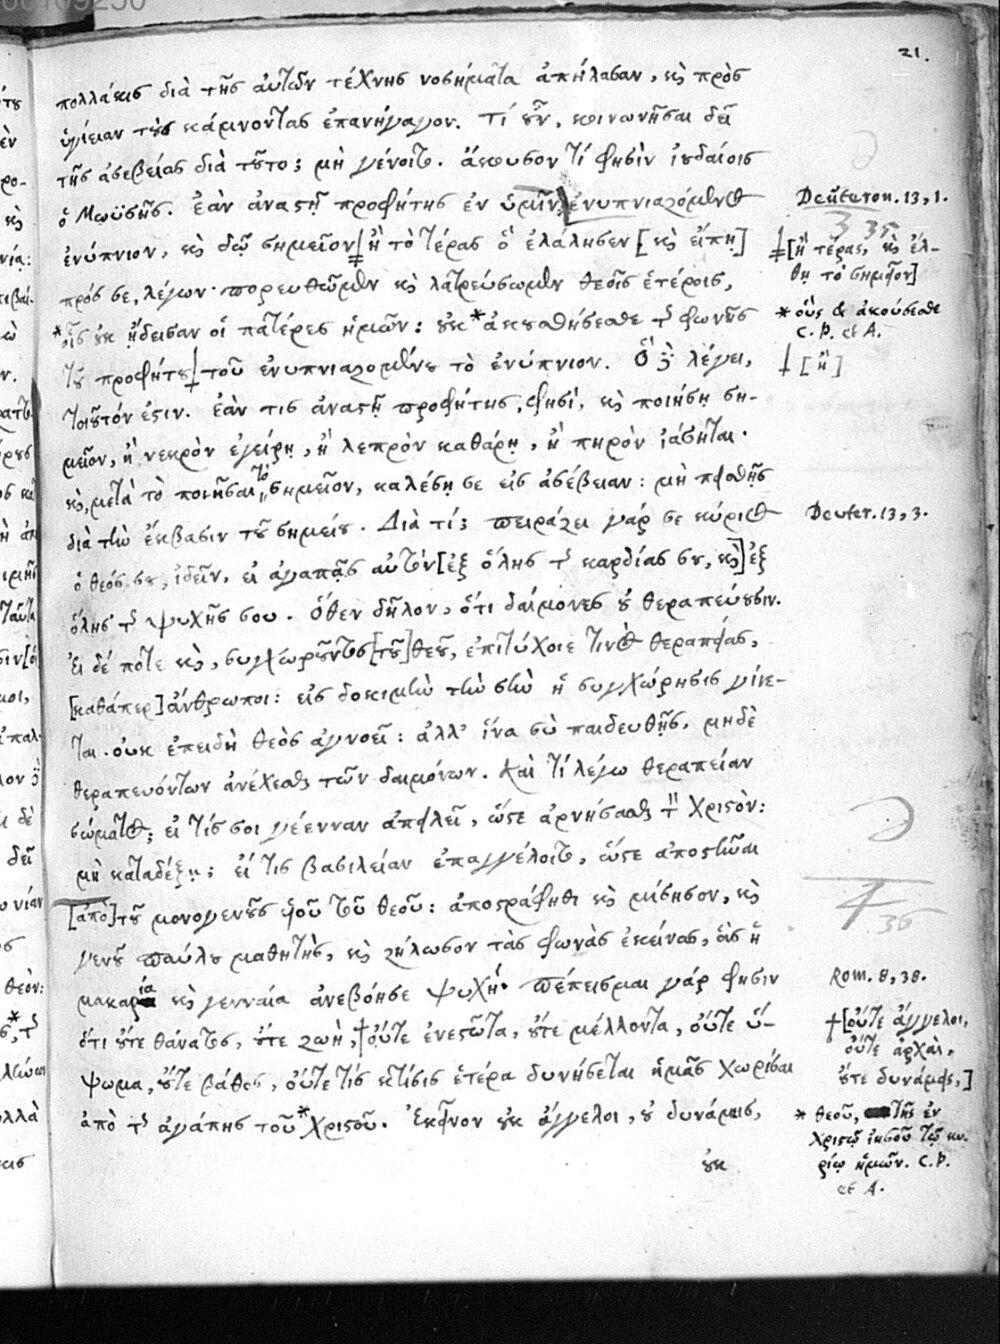 21.
πολλάκις διὰ τῆς αὐτῶν τέχνης νοσήματα ἀπήλασαν, κὶ πρὸς
ὑγίειαν τοὺς κάμνοντας ἐπανήγαγον. Τί οὖν, κοινωνῆσαι δεῖ
τῆς ἀσεβείας διὰ τοῦτο; μὴ γένοιτο. ἄκουσον τί φησὶν ἰουδαίοις
ὁ Μωϋσῆς. Ἐὰν ἀναστῇ προφήτης ἐν ὑμῖν, ἐνυπνιαζόμενος
Deuteron. 13, 1.
ἐνύπνιον, κὶ δῷ σημεῖον ἢ τὸ τέρας ὃ ἐλάλησεν [κὶ εἴπῃ]
[ἢ τέρας, κὶ ἔλ-
θῃ τὸ σημεῖον]
πρός σε, λέγων· πορευθῶμεν κὶ λατρεύσωμεν θεοῖς ἑτέροις,
*οἷς οὐκ ᾔδεισαν οἱ πατέρες ἡμῶν: οὐκ *ἀκουσθήσεσθε τῆς φωνῆς
* οὓς & ἀκούσεσθε
C. P. et A.
τοῦ προφήτου τοῦ ἐνυπνιαζομένου τὸ ἐνύπνιον. Ὃ δὲ λέγει,
[ἢ]
τοιοῦτόν ἐστιν. ἐὰν τις ἀναστῇ προφήτης, φησὶ, κὶ ποιήσῃ ση-
μεῖον, ἢ νεκρὸν ἐγείρῃ, ἢ λεπρὸν καθάρῃ, ἢ πηρὸν ἰάσηται·
κὶ, μετὰ τὸ ποιῆσαι τὸ σημεῖον, καλέσῃ σε εἰς ἀσέβειαν: μὴ πεισθῇς
διὰ τὴν ἔκβασιν τοῦ σημείου. Διὰ τί; πειράζει γάρ σε κύριος
Deuter. 13, 3.
ὁ θεός σου, ἰδεῖν, εἰ ἀγαπᾷς αὐτὸν [ἐξ ὅλης τῆς καρδίας σου, κὶ] ἐξ
ὅλης τῆς ψυχῆς σου. Ὅθεν δῆλον, ὅτι δαίμονες οὐ θεραπεύουσιν.
Εἰ δέ ποτε κὶ, συγχωροῦντος [τοῦ] θεοῦ, ἐπιτύχοιέ τινος θεραπείας,
[καθάπερ] ἄνθρωποι: εἰς δοκιμὴν τὴν σὴν ἡ συγχώρησις γίνε-
ται. οὐκ ἐπειδὴ θεὸς ἀγνοεῖ: ἀλλ' ἵνα σὺ παιδευθῇς, μηδὲ
θεραπευόντων ἀνέχεσθαι τῶν δαιμόνων. Καὶ τί λέγω θεραπείαν
σώματος; εἰ τίς σοι γέενναν ἀπειλεῖ, ὥστε ἀρνήσασθαι τὸν Χριστὸν:
μὴ καταδέξῃ: εἰ τις βασιλείαν ἐπαγγέλοιτο, ὥστε ἀποστῆναι
[ἀπὸ] τοῦ μονογενοῦς υἱοῦ τοῦ θεοῦ: ἀποστράφηθι κὶ μίσησον, κὶ
36
γενοῦ παύλου μαθητὴς, κὶ ζήλωσον τὰς φωνὰς ἐκείνας, ἃς ἡ
μακαρία κὶ γενναία ἀνεβόησε ψυχή. Πέπεισμαι γάρ φησιν
Rom. 8, 38.
ὅτι οὔτε θάνατος, οὔτε ζωὴ, †οὔτε ἐνεστῶτα, οὔτε μέλλοντα, οὔτε ὕ-
† [οὔτε ἄγγελοι,
οὔτε ἀρχαὶ,
οὔτε δυνάμεις,]
ψωμα, οὔτε βάθος, οὔτε τὶς κτίσις ἑτέρα δυνήσεται ἡμᾶς χωρίσαι
ἀπὸ τῆς ἀγάπης τοῦ *Χριστοῦ. Ἐκεῖνον οὐκ ἄγγελοι, οὐ δυνάμεις,
* θεοῦ, τῆς ἐν
Χριστῷ ἰησοῦ τῷ κυ-
ρίῳ ἡμῶν. C. P.
et A.
οὐκ